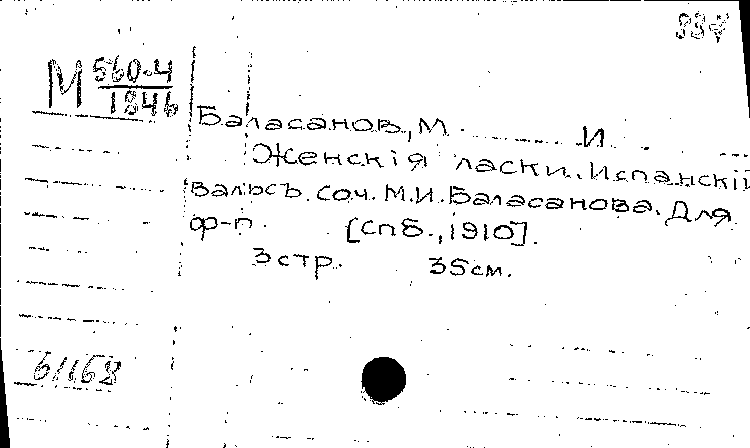 М 560-4
1846
Баласанов, М. И.
Женскія ласки. Испанскій
вальсъ. соч. М.И. Баласанова. Для
ф-п. [СПБ., 1910].
3 стр. 35см.